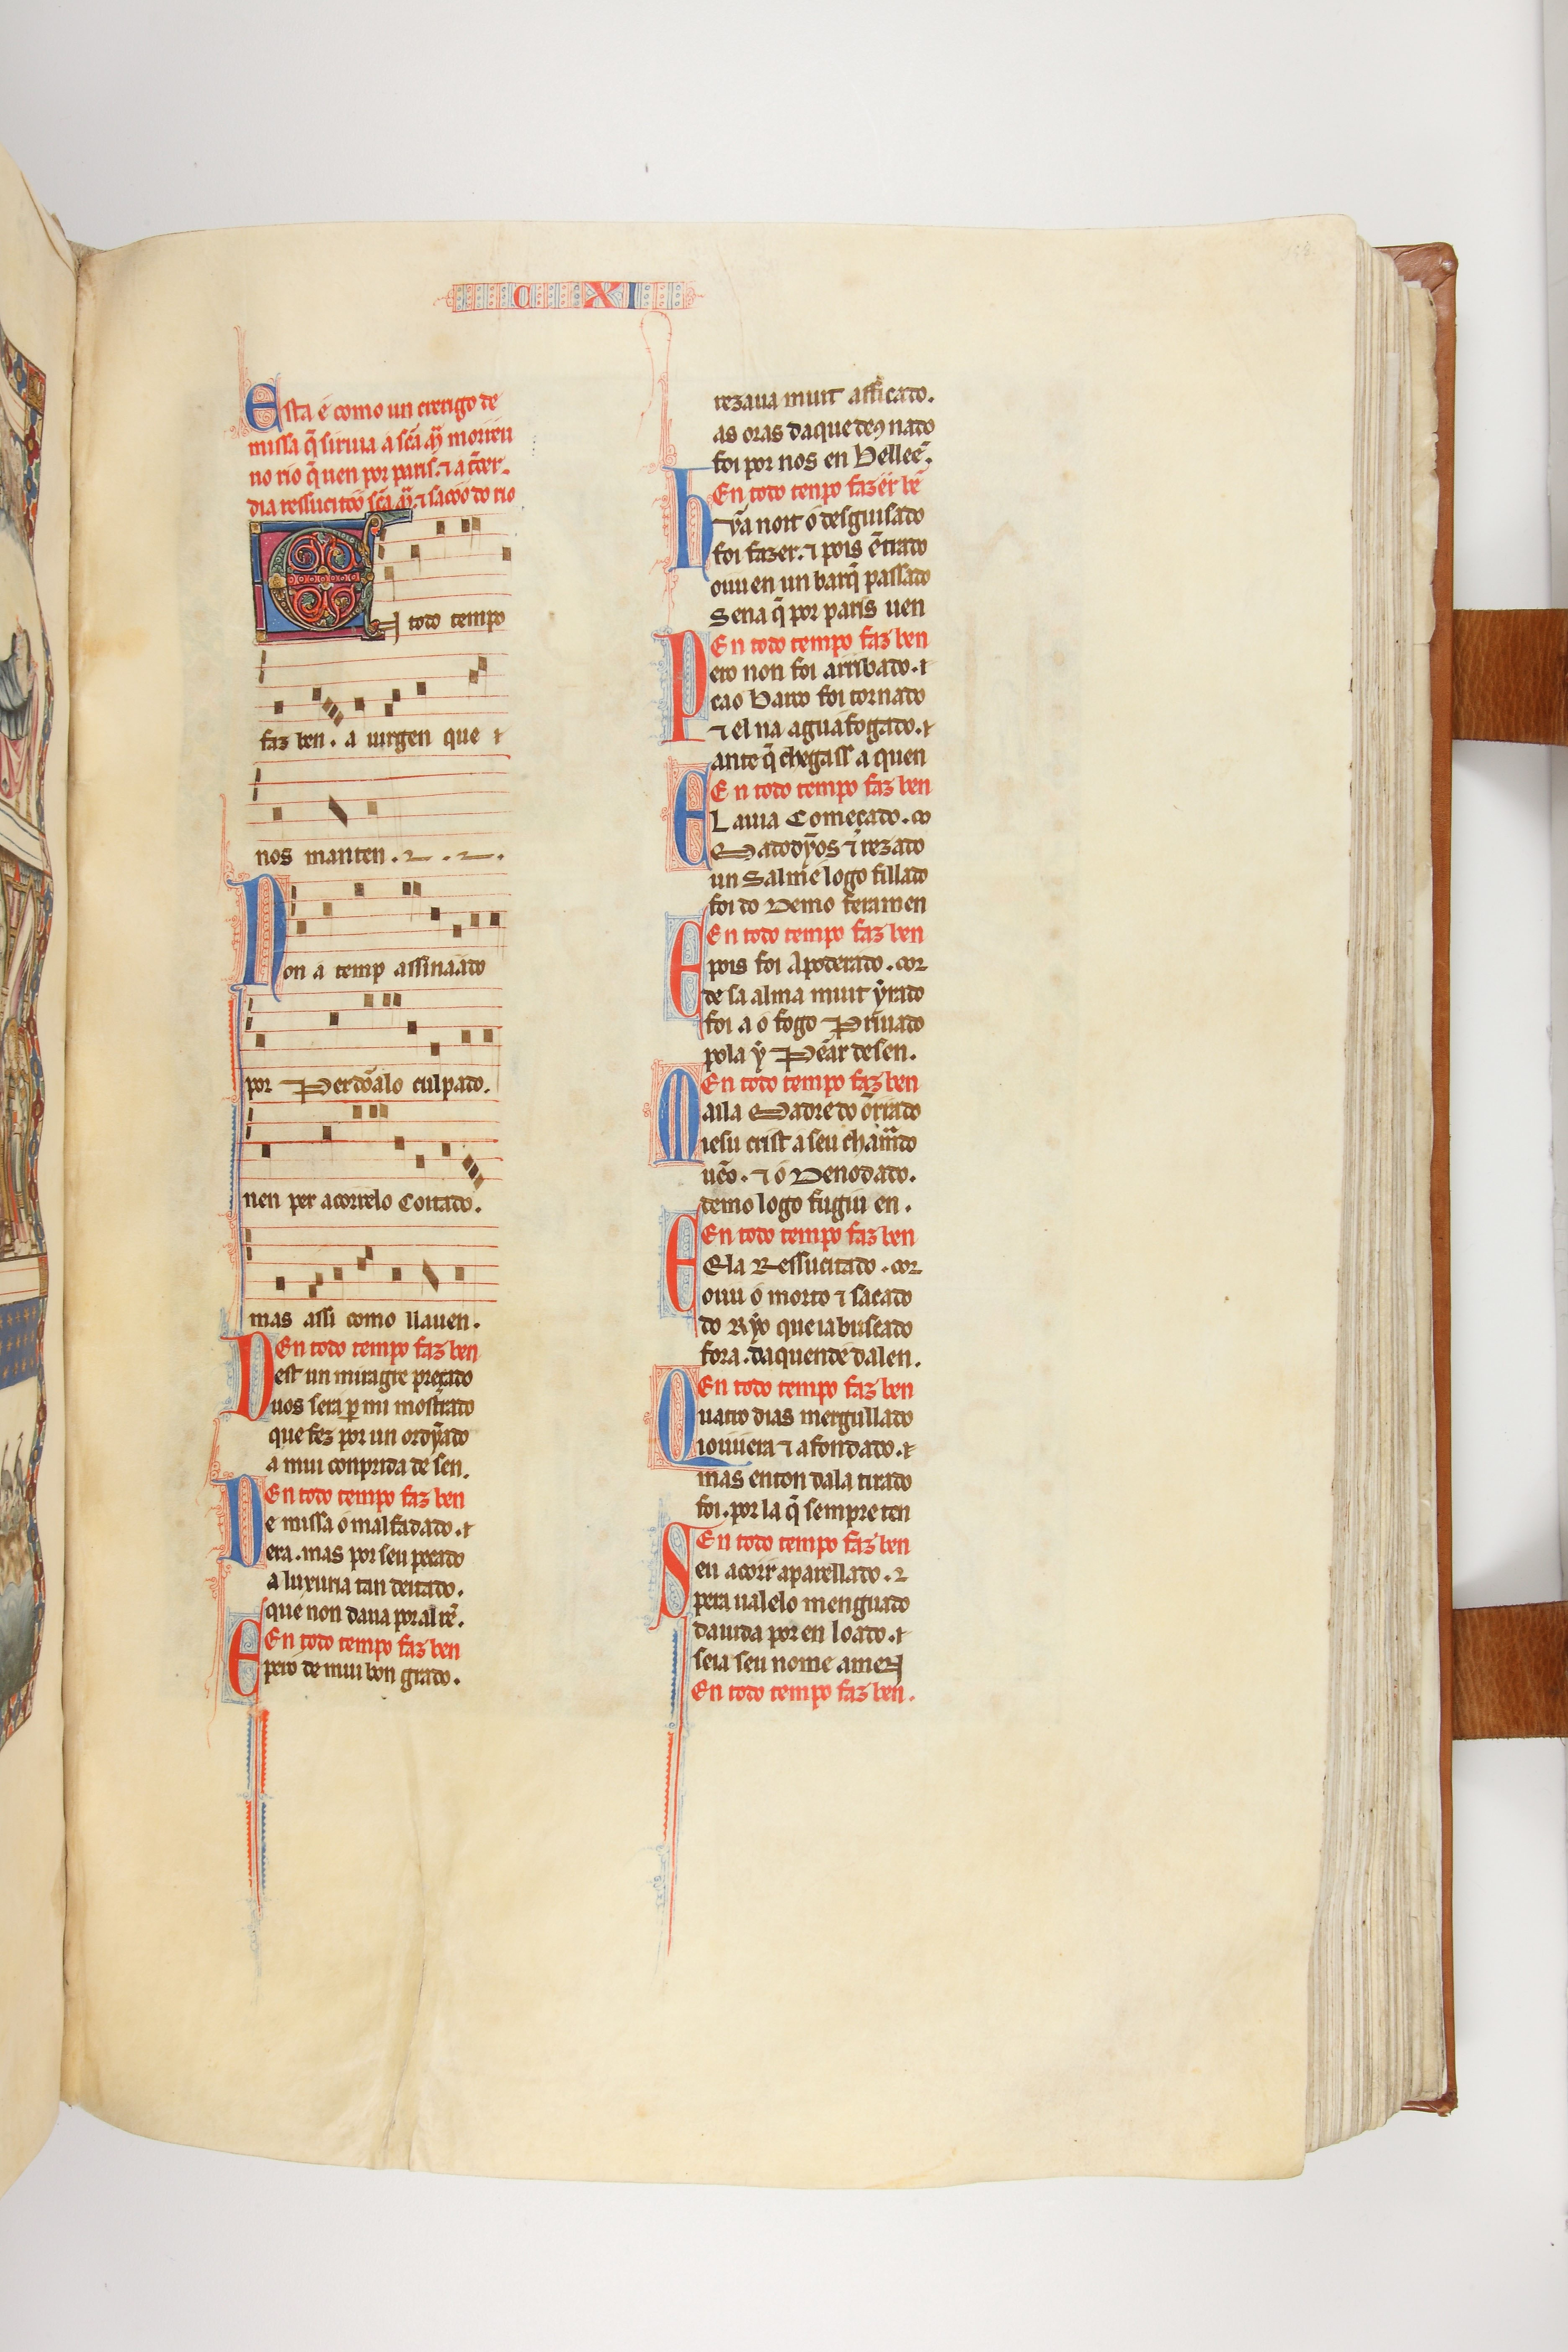 C XI
158
Esta é como un crerigo de
missa q̃ seruia a sc̃a mª morreu
no rio q̃ uen por paris. ⁊ a t̃cer
dia ressucitóo sc̃a mª. ⁊ sacóo do rio
EN todo tempo
faz ben. a uirgen que
nos manten.
Non a temp assinaado
por Perdõalo culpado.
nen per acorrelo Coitado.
mas assi como llauen.
En todo tempo faz ben
Dest un miragre preçado
uos será ꝑ mi mostrado
que fez por un ordỹado
a mui conprida de sen.
En todo tempo faz ben
De missa ó malfadado.
era. mas por seu pecado
a luxuria tan deitado.
que non daua por al rẽ.
En todo tempo faz ben
Epero de mui bon grado.
rezaua muit afficado.
as oras daque deꝯ nado
foi por nos en Belleẽ.
En todo tenpo fazer bẽ
Hũa noit ó desguisado
foi fazer. ⁊ pois ẽtrado
ouu en un barq̃ passado
Sena q̃ por paris uen
En todo tempo faz ben
Pero non foi arribado.
cao Barco foi tornado
⁊ el na agua fogado.
ante q̃ chegass a quen
En todo tempo faz ben
EL auia Começado. co
Matodỹos ⁊ rezado
un Salm é logo fillado
foi do Demo feramen
En todo tempo faz ben
E pois foi Apoderado. cor
de sa alma muit ỹrado
foi a ó fogo Priuado
pola ỹ Pẽar desen.
En todo tempo faz ben
Mailla Madre do õrrado
iesu crist a seu chamado
uẽo. ⁊ ó Denodado.
demo logo fugiu en.
En todo tempo faz ben
Ela Ressucitado. cor
ouu ó morto ⁊ sacado
do Rỹo que ia buscado
fora. daquende dalen.
En todo tempo faz ben
Quatro dias mergullado
i ouuera ⁊ afondado.
mas enton dala tirado
foi. por la q̃ sempre ten
En todo tempo faz ben
Sen acorr aparellado.
pera ualelo menguado
dauida por en loado.
seia seu nome ameN
En todo tempo faz ben.